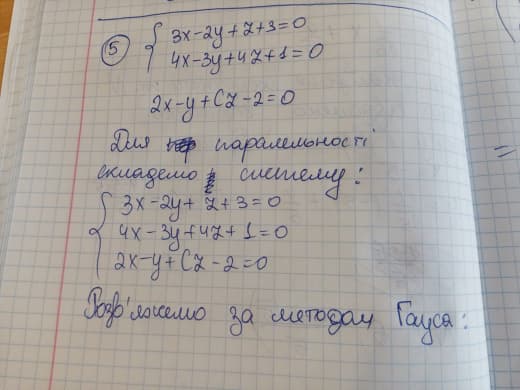 5
3x-2y+z+3=0
4x-3y+4z+1=0
2x-y+Cz-2=0
Для паралельності
складемо систему:
3x-2y+z+3=0
4x-3y+4z+1=0
2x-y+Cz-2=0
Розв'яжемо за методом Гауса: